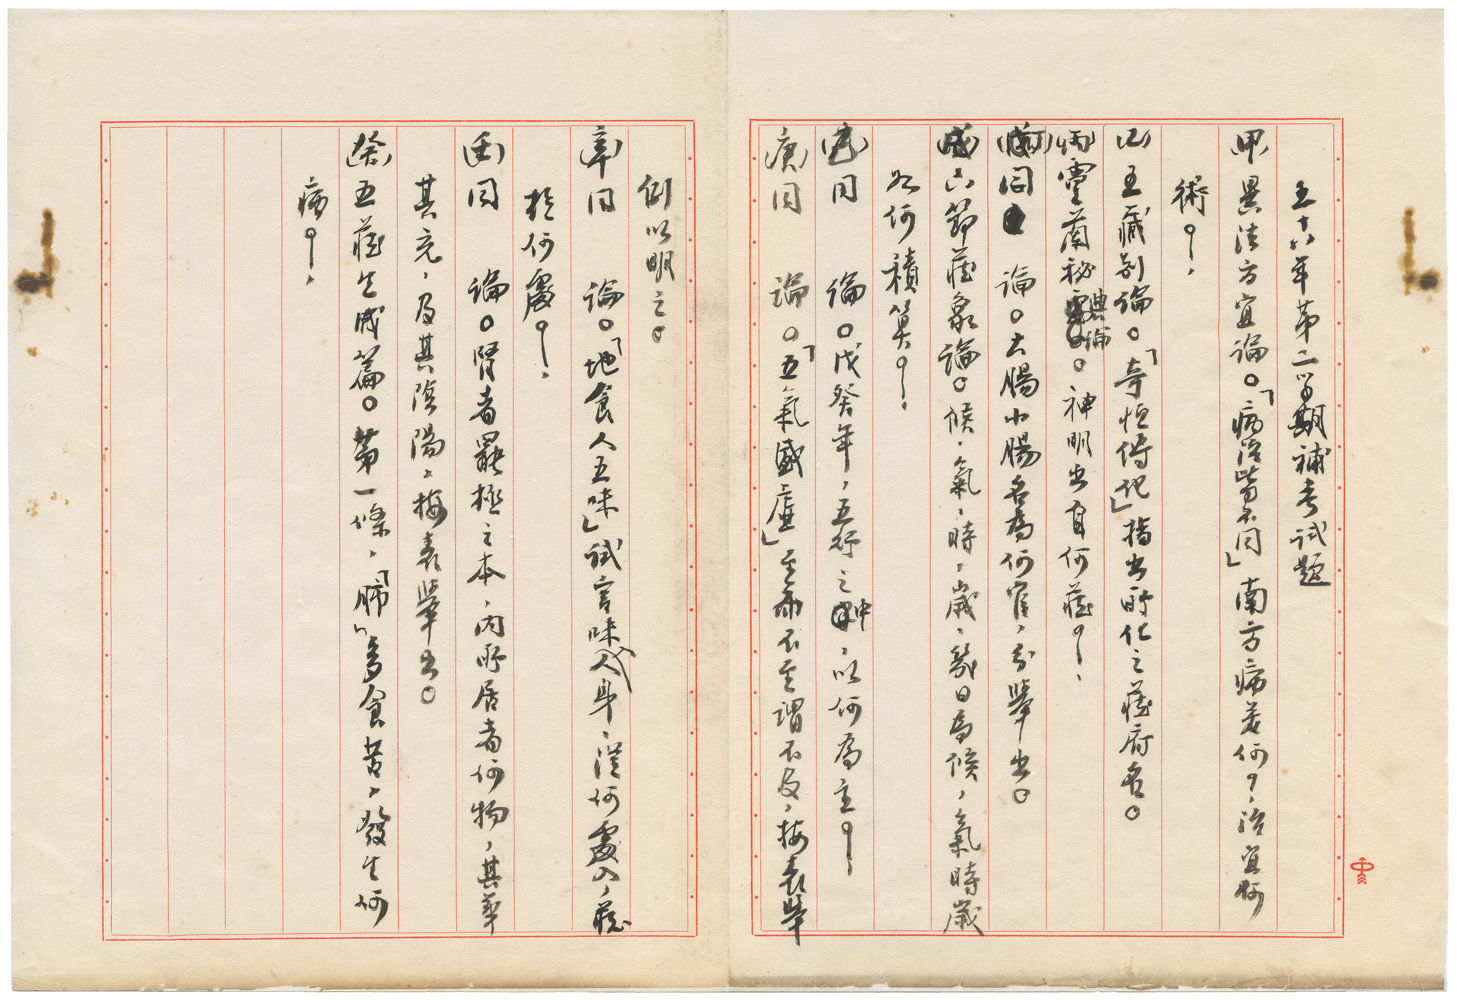 五十八年第二學期補考試題
(甲)異法方宜論。「病治皆不同」南方病萎何?,治宜何
術?
(乙)五藏別論。「奇恒傳化」指出所化之藏府名。
(丙)靈蘭秘典論。神明出自何藏?
(丁)同 論。大腸小腸名為何官,分舉出。
(戊)六節藏象論。候、氣、時、歲、幾日為候,氣時歲
如何積算?
(己)同 論。戊癸年,五行之中,以何為主?
(庚)同 論。「五氣盛虛」至而不至謂不及,按表舉
例以明之。
(辛)同 論。「地食人五味」試言味入身,從何處入,藏
於何處?
(壬)同 論。腎者罷極之本,內所居者何物,其華
其充,及其陰陽,按表舉出。
(癸)五藏生成篇。第一條,「肺」多食苦,發生何
病?